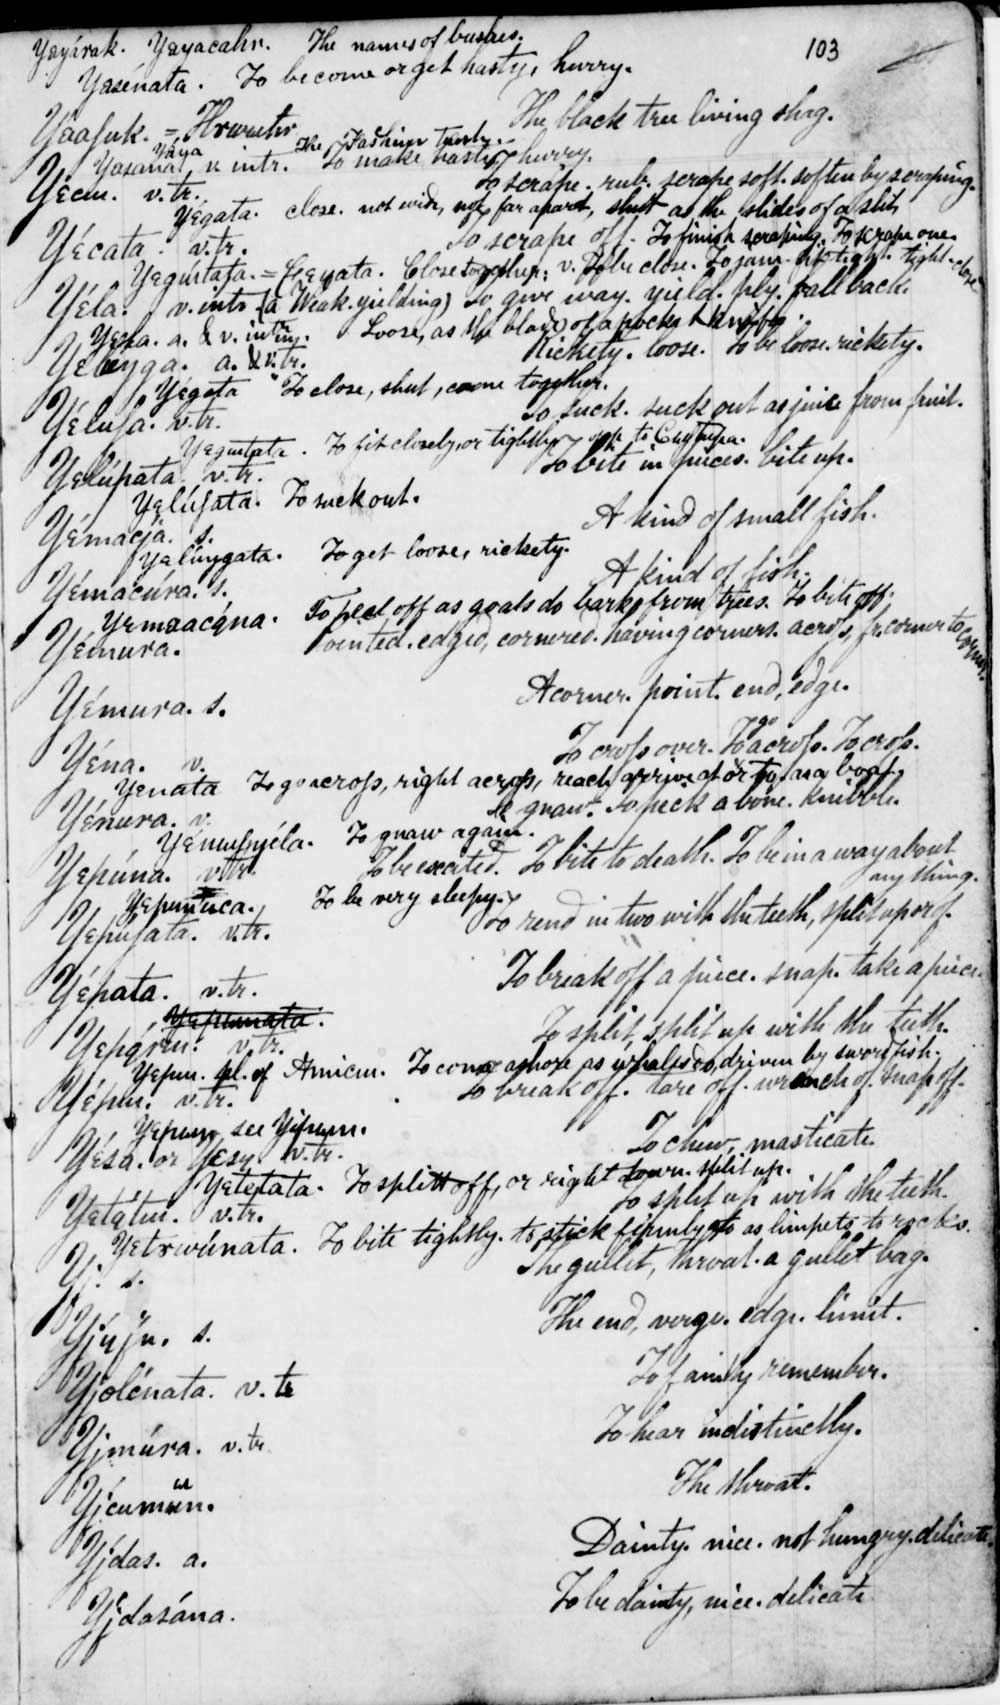 103
Yɛyárak. Yɛyacahr. The names of bushes.
Yɛsɛ́nata. To become or get hasty, hurry.
Yaaſuk. = The black tree living shag.
Yáya The
Yasana. v intr. To make hasty, hurry.
Yɛ́cin. v. tr. To scrape. rub. scrape soft. soften by scraping.
Yégata. close. not wide, not far apart, shut as the slides of a slit,
Yɛ́cata. v. tr. To scrape off. To finish scraping. To scrape one.
Yɛgutata. = Close together. v. To be close. To jam. fit tight. tight. close
Yɛ́la. v. intr (a Weak. yielding) To give way. yield. ply. fall back.
Yɛla. a. & v. intr. Loose, as the blade of a pocket knife.
a. & v. tr. Rickety. loose. To be loose. rickety.
Yégata To close, shut, come together.
Yɛ́luſa. v. tr. To suck. suck out as juice from fruit.
Yɛgutata. To fit closely, or tightly
Yɛlúpata. v. tr. To bite in pieces. bite up.
Yɛlúſata. To suck out.
Yɛ́macja. s. A kind of small fish.
Yɛlúngata. To get loose, rickety.
Yɛ́macúra. s. A kind of fish.
To peel off as goats do barks from trees. To bite off.
Yɛ́mura. Pointed. edged, cornered. having corners. across, fr. corner to corner.
Yɛ́mura. s. A corner. point. end, edge.
go
Yɛ́na. v. To cross over. To across. To cross.
Yɛnata To go across, right across, reach, arrive at or to, as a boat.
Yɛ́nura. v. To gnaw. To pick a bone. knibble.
To gnaw again.
Yɛpúna. v. tr. To be excited. To bite to death. To be in a way about
any thing.
To be very sleepy.
Yɛpuſata. v. tr. To rend in two with the teeth, split up or of.
Yɛ́pata. v. tr. To break off a piece. snap. take a piece.
v. tr. To split, split up with the teeth.
Yɛpun. pl. of Amicin. To come ashore as whales do, driven by sword fish.
Yɛ́pun. v. tr. To break off. tare off. wrench of. snap off.
see
Yɛ́sa. or Yɛsɥ. v. tr. To chew, masticate.
Yɛtɛtata. To split off, or right down. split up.
Yɛtɥ́tu. v. tr. To split up with the teeth.
Yɛtɛwúnata. To bite tightly. to stick firmly to as limpets to rocks.
Yj. s. The gullet, throat. a gullet bag.
s. The end, verge. edge. limit.
Yjolɛ́nata. v. tr To faintly remember.
Yjmúra. v. tr To hear indistinctly.
Yjcumun. The throat.
Yjdas. a. Dainty. nice. not hungry. delicate.
Yjdasána. To be dainty, nice. delicate